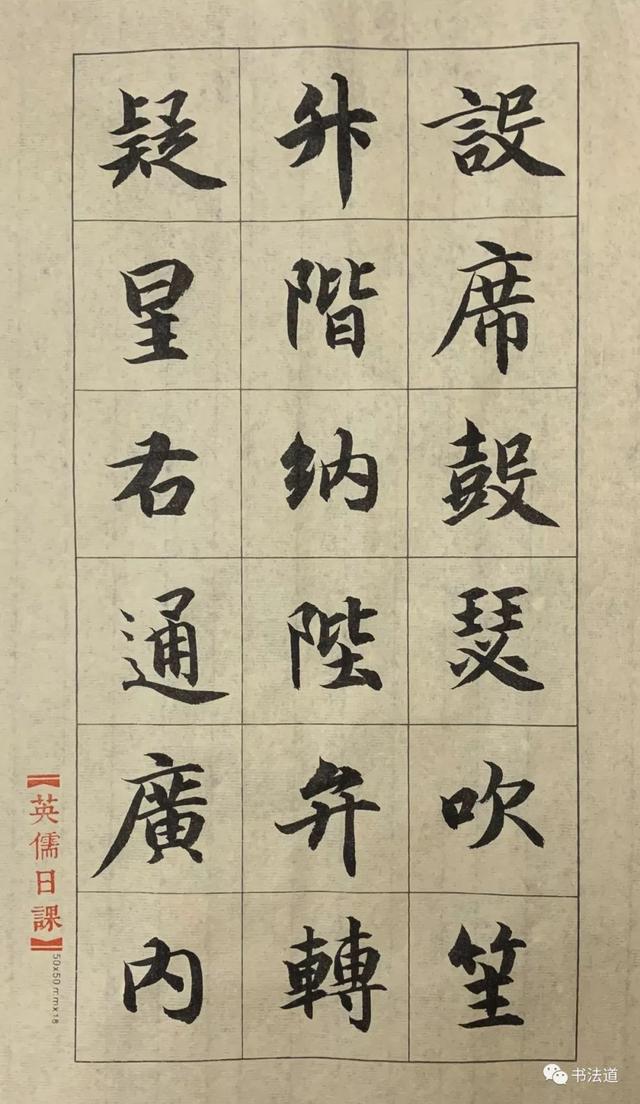 設席鼓瑟吹笙
升階纳陛弁轉
疑星右通廣内
【英儒日課】
50x50mmx18
书法道